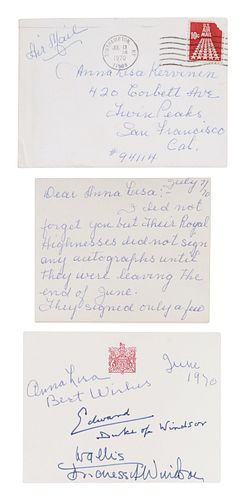 Air Mail
SOUTHAMPTON, NY
JUL 13
1970
11968
10c
US
AIR MAIL
Anna Lisa Kervinen
420 Corbett Ave
Twin Peaks,
San Francisco
Cal.
#94114
July 7/
70
Dear Anna Lisa:-
I did not
forget you but Their Royal
Highnesses did not sign
any autographs until
they were leaving the
end of June.
They signed only a few
Anna Lisa
June
1970
Best Wishes
Edward
Duke of Windsor
Wallis
Duchess of Windsor